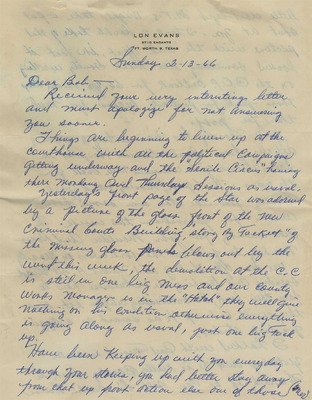 LON EVANS
FT. WORTH 9, TEXAS
Sunday 2-13-66
Dear Bob—
Received your very interesting letter
and must apologize for not answering
you sooner.
Things are beginning to liven up at the
courthouse with all the political Campaigns
getting underway and the Senile Circus having
there Monday and Thursdays sessions as usual.
Yesterday's front page of the Star was adorned
by a picture of the glass front of the new
Criminal Courts Building, story by
the missing glass panels blown out by the
wind this week, the demolition at the C.C.
is still in one big mess and our County
Works Manager is in the "Hotel" they will give
nothing on his condition otherwise everything
is going along as usual, just one big
up.
Have been keeping up with you everyday
through your stories, you had better stay away
from that up front action else one of those